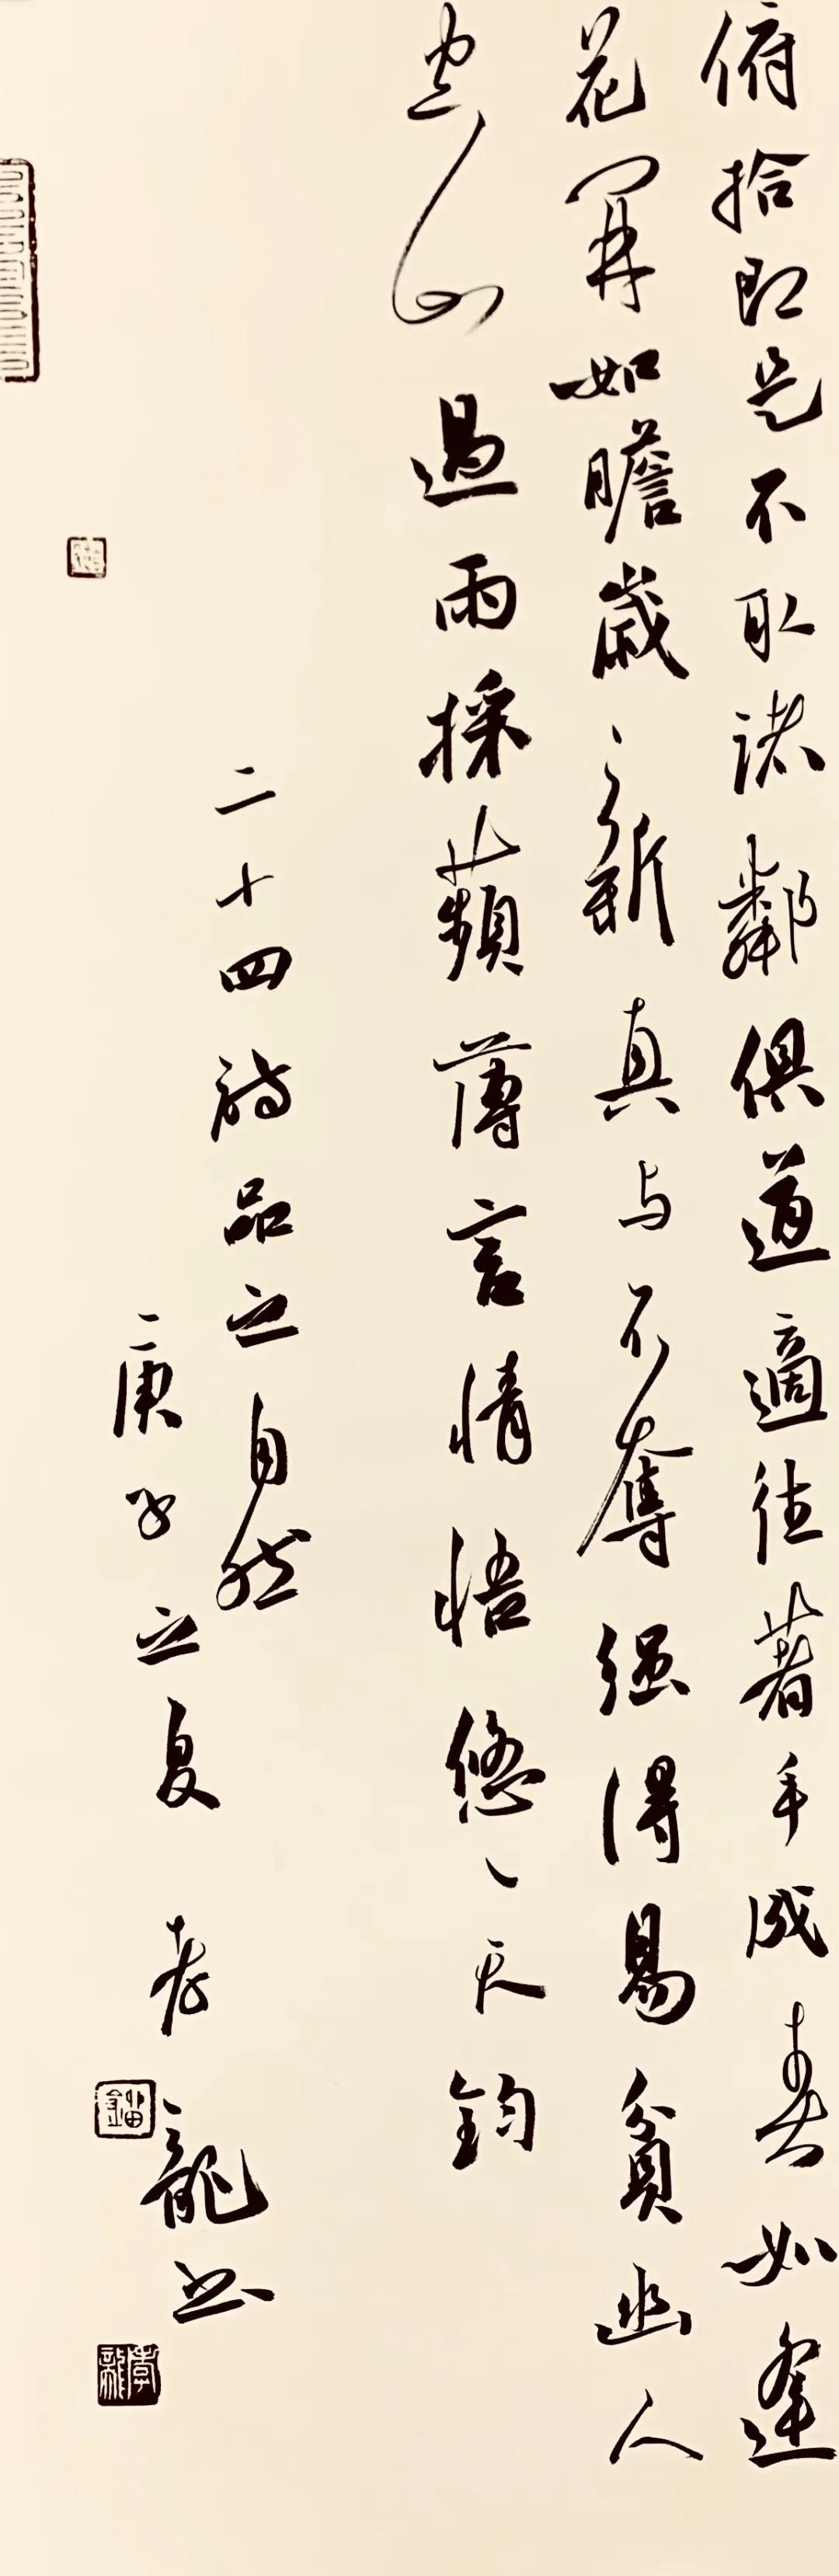 俯拾即是不取诸鄰俱道適往著手成春如逢
花開如瞻歲〻新真与不奪强得易貧幽人
空山過雨採蘋薄言情悟悠〻天鈞
二十四詩品之自然
庚子之夏 孝龍书